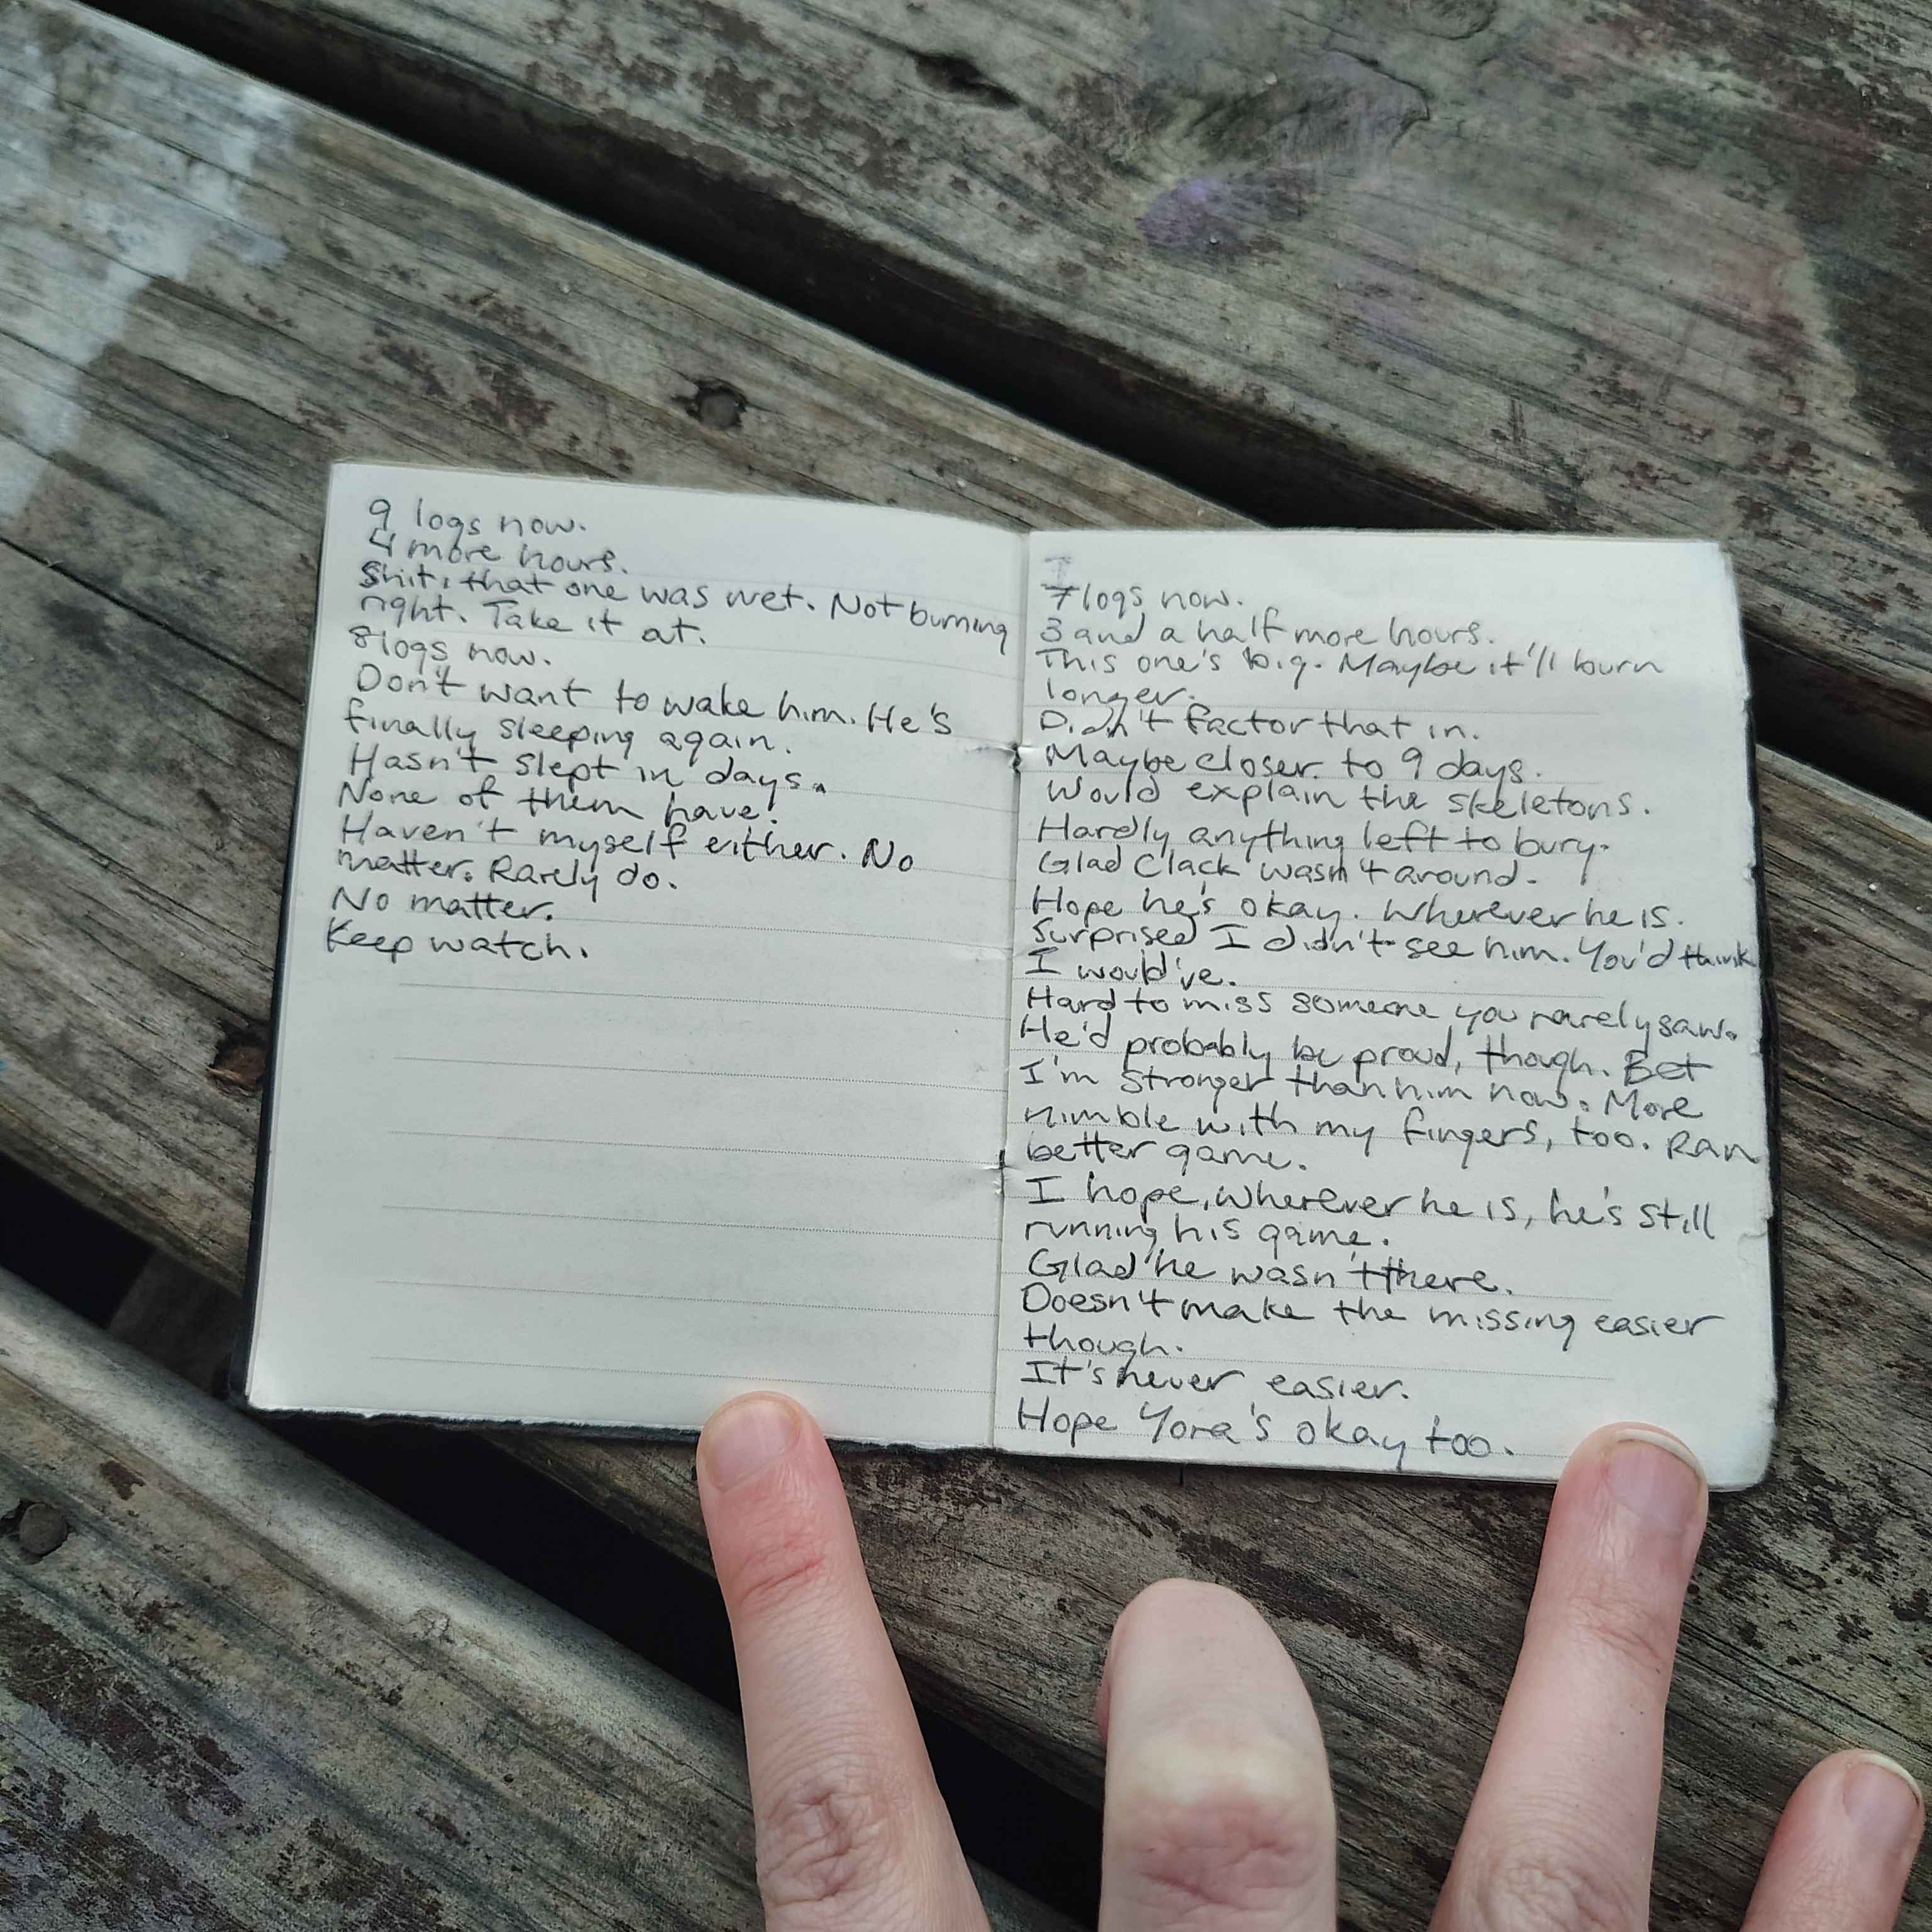 9 logs now.
4 more hours.
Shit, that one was wet. Not burning
right. Take it at.
8 logs now.
Don't want to wake him. He's
finally sleeping again.
Hasn't slept in days.
None of them have.
Haven't myself either. No
matter. Rarely do.
No matter.
Keep watch.
7 logs now.
3 and a half more hours.
This one's big. Maybe it'll burn
longer.
Didn't factor that in.
Maybe closer to 9 days.
Would explain the skeletons.
Hardly anything left to bury.
Glad Clack wasn't around.
Hope he's okay. Wherever he is.
Surprised I didn't see him. You'd think
I would've.
Hard to miss someone you rarely saw.
He'd probably be proud, though. Bet
I'm stronger than him now. More
nimble with my fingers, too. Ran
better game.
I hope, wherever he is, he's still
running his game.
Glad he wasn't there.
Doesn't make the missing easier
though.
It's never easier.
Hope Yora's okay too.